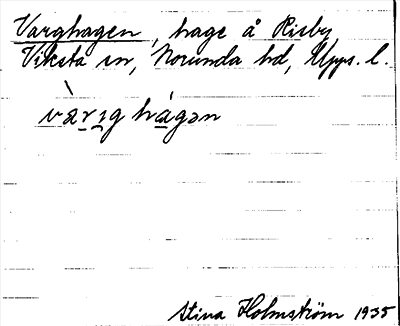 Varghagen, hage å Risby,
Viksta sn, Norunda hd, Upps. l.
vàrıg hágən
Stina Holmström 1935